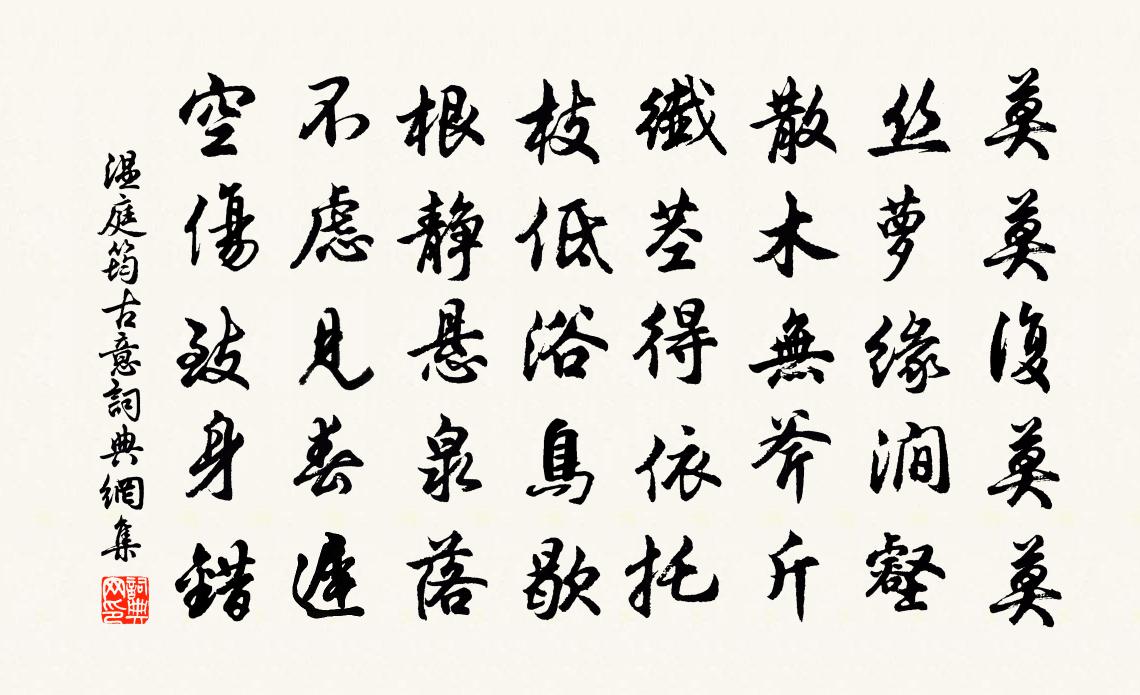 莫莫復莫莫
丝萝缘澗壑
散木無斧斤
纖茎得依托
枝低浴鳥歇
根静悬泉落
不虑見春遲
空傷致身錯
温庭筠古意詞典網集
詞典網印